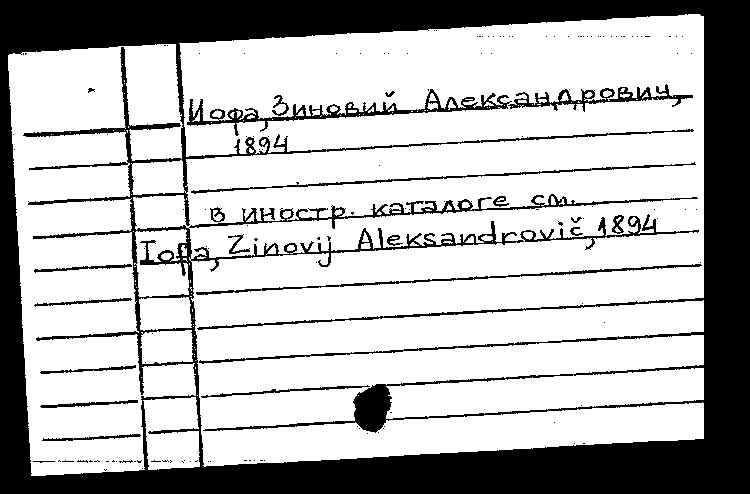 Иофа, Зиновий Александрович,
1894
в иностр. каталоге см.
Iofa, Zinovij Aleksandrovič, 1894